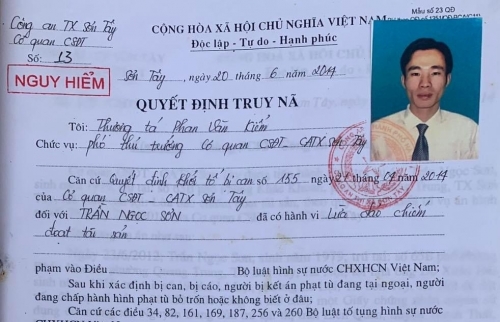 Mẫu số 23 QĐ
Công an TX Sơn Tây
Cơ quan CSĐT
Số: 13
CỘNG HÒA XÃ HỘI CHỦ NGHĨA VIỆT NAM
Độc lập - Tự do - Hạnh phúc
NGUY HIỂM
Sơn Tây, ngày 20 tháng 6 năm 2014
QUYẾT ĐỊNH TRUY NÃ
Tôi: Thượng tá Phan Văn Kiểm
Chức vụ: phó thủ trưởng Cơ quan CSĐT - CATX Sơn Tây
Căn cứ Quyết định khởi tố bị can số 155 ngày 21 tháng 04 năm 2014
của Cơ quan CSĐT - CATX Sơn Tây
đối với TRẦN NGỌC SƠN đã có hành vi Lừa đảo chiếm
đoạt tài sản
phạm vào Điều Bộ luật hình sự nước CHXHCN Việt Nam;
Sau khi xác định bị can, bị cáo, người bị kết án phạt tù đang tại ngoại, người
đang chấp hành hình phạt tù bỏ trốn hoặc không biết ở đâu;
Căn cứ các điều 34, 82, 161, 169, 187, 256 và 260 Bộ luật tố tụng hình sự nước